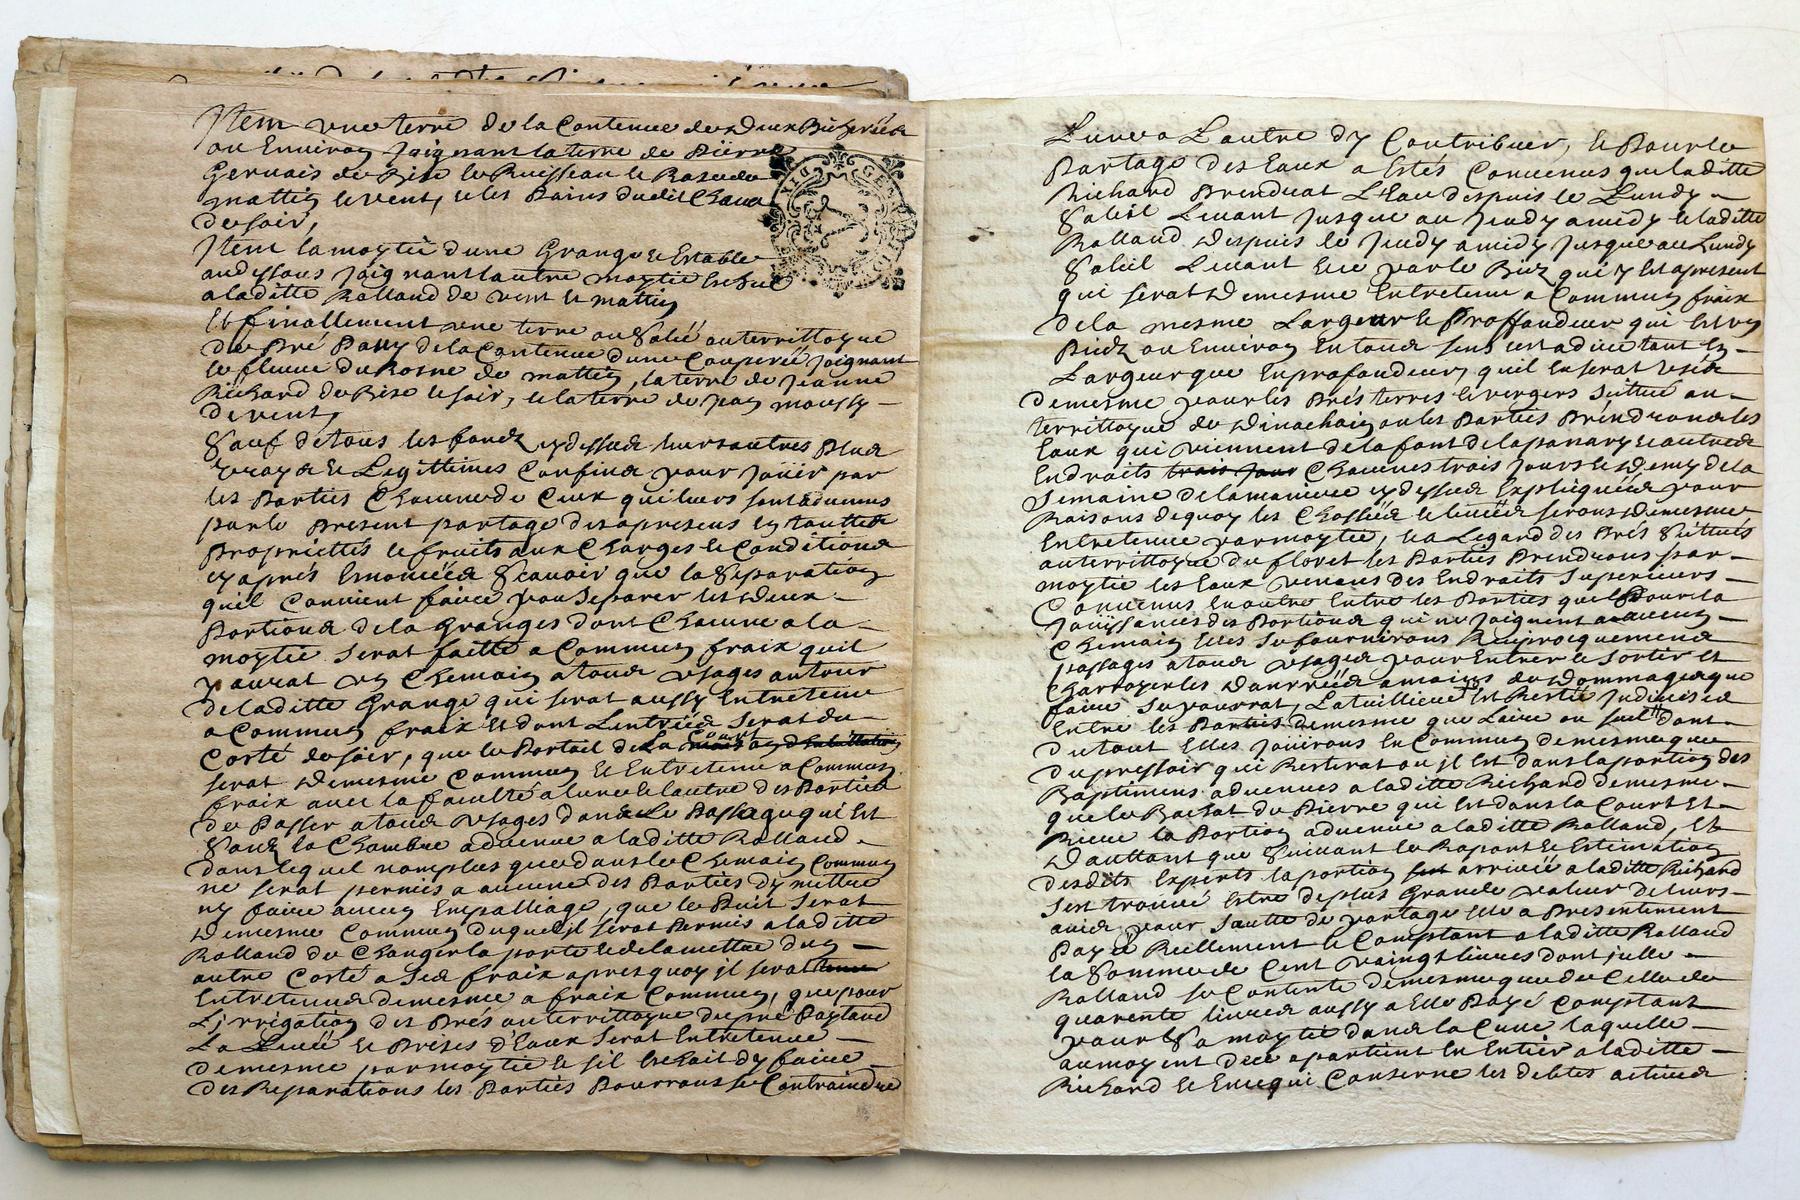 Item une terre de la Contenue de deux Bicherées
ou Environ joignant la terre de Pierre
Gervais de Bise le Ruisseau le Rosne de
mattin le vent, et les Bains dudit
de soir,
Item la moytié dune Grange et Estable
au dessous joignant lautre moytié escheüe
a laditte Rolland de vent et mattin
Et finallement une terre au territtoyre
du Pré Pauy de la Contenue dune Couperée joignant
le fleuve du Rosne de mattin, la terre de Jeanne
Richard de Bise le soir, et la terre de Jean moussy
de vent,
Sauf de tous les fondz cy dessus leurs autres Plus
vrays et Legittimes Confins pour joüir par
les Parties Chacune de Ceux qui leurs sont advenus
par le present partage des apresens en touttes
Propriettés et fruits aux Charges et Conditions
cy aprés Enoncées Scauoir que la Separation
quil Convient faire pour Separer les deux
Portions de la Granges dont Chacune a la
moytié serat faitte a Commun fraix quil
y aurat un Chemain a tous usages autour
de laditte Grange qui serat aussy Entretenu
a Commun fraix Et dont Lentrées serat du
Corté de soir, que le Portail de la Court
serat demesme Commun et Entretenu a Commun
fraix avec la faculté a lune et lautre des Parties
de Passer a tous usages dans le Passage qui Est
Sous la Chambre advenue a laditte Rolland
dans lequel nomplus que dans le Chemain Commun
ne serat permis a aucune des Parties dy mettre
ny faire aucun Empalliage, que le Puit serat
demesme Commun duquel il serat Permis a laditte
Rolland de Changer la porte et de la mettre dun
autre Corté a Ses fraix apres quoy il serat
Entretenus demesme a fraix Commun, que pour
Lirrigation des Prés au territtoyre du pré Paytaud
La Levée et Prises d'Eaux Serat Entretenue
demesme par moytié et sil Escheoit dy faire
des Reparations les Parties Pourrons se Contraindre
Lune a Lautre dy Contribuer, et Pour le
Partage des Eaux a Estés Convenus que laditte
Richard Prendrat L'Eau despuis le Lundy
Soleil Levant jusque au jeudy a midy et laditte
Rolland despuis le jeudy a midy jusque au Lundy
Soleil Levant Et ce par le Biez qui y Est apresent
qui serat demesme Entretenu a Commun fraix
de la mesme Largeur et Proffondeur qui Est un
Piedz ou Environ En tous sens cest a dire tant En
Largeur que En profondeur, quil En serat usés
demesme pour les Prés terres et vergers Scittué au
territtoyre de dinachain ou les Parties Prendrons les
Eaux qui viennent de la font de la panary et autres
Endroits trois jour Chacunes trois jours et demy de la
Semaine de la maniere cy dessus Expliquées pour
Raisons de quoy les Chossées et levées serons demesme
Entretenue par moytié, Et a Legard des Prés Scittués
au territtoyre du floret les Parties Prendrons par
moytié les Eaux venans des Endroits Superieurs
Convenus En outre Entre les Parties que Pour la
Joüissances des Portions qui ne joignent a aucun
Chemain Elles Se fournirons Reciprocquement
passages a tous usages pour Entrer et Sortir Et
Charroyer les danrées a moins de dommages que
faire Se pourrat, La tuilliere Est Restée Indivise
Entre les Parties demesme que Laire ou suel dont
du tout Elles joüirons En Commun demesme que
du pressoir qui Resterat ou il Est dans la portion des
Baptimens advenues a laditte Richard demesme
que le Bachat de Pierre qui Est dans la Court Et
Riere la Portion advenue a laditte Rolland, Et
Dauttant que Suivant le Raport et Estimation
desdits Experts la portion arrivée a laditte Richard
sest trouvé Estre de plus Grande valeur de leurs
avis pour Soutte de partage Elle a Presentement
Payé Reellement et Comptant a laditte Rolland
la Somme de Cent vaingt livres dont jcelle
Rolland se Contente demesme que de Celle de
quarente livres aussy a Elle Payé Comptant
pour Sa moytié dans la Cuve laquelle
au moyent de ce apartient En Entier a laditte
Richard Et En ce qui Conserne les debtes actives